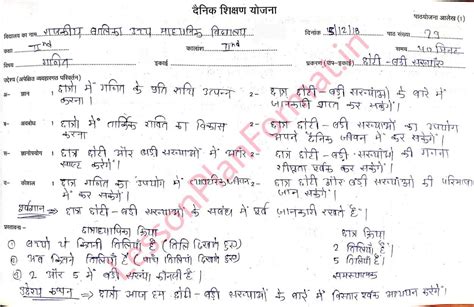 दैनिक शिक्षण योजना
पाठयोजना आलेख (1)
विद्यालय का नाम राजकीय बालिका उच्च माध्यमिक विद्यालय दिनांक 15/12/18 पाठ संख्या 29
कक्षा IInd कालांश IInd समय 40 मिनट
विषय गणित प्रकरण (उप-इकाई) छोटी-बड़ी संख्याएँ
उद्देश्य (अपेक्षित व्यवहारगत परिवर्तन)
ज्ञान : छात्रों में गणित के प्रति रुचि उत्पन्न करना। छात्र छोटी-बड़ी संख्याओं के बारे में जानकारी प्राप्त कर सकेंगे।
अवबोध : छात्रों में तार्किक शक्ति का विकास करना छात्र छोटी-बड़ी संख्याओं का उपयोग अपने दैनिक जीवन में कर सकेंगे।
ज्ञानोपयोग : छात्र छोटी और बड़ी संख्याओं में अंतर स्पष्ट करेंगे। छात्र छोटी-बड़ी संख्याओं की गणना शीघ्रता पूर्वक कर सकेंगे।
कौशल : छात्र गणित का उपयोग में व्यावहारिक जीवन में कर सकेंगे। छात्र छोटी और बड़ी संख्याओं की
पूर्वज्ञान :- छात्र छोटी-बड़ी संख्याओं के संबंध में पूर्व जानकारी रखते हैं।
प्रस्तावना
छात्राध्यापिका क्रिया छात्र क्रिया
① बच्चों ये कितनी तिलियाँ है (तिलि दिखाते हुए) 2 तिलियाँ है।
② अब कितने तिलियाँ है (तिलि दिखाते हुए) 5 तिलियाँ है।
③ 2 और 5 में बड़ी संख्या कौनसी है। समस्यात्मक
उद्देश्य कथन :- छात्रों आज हम छोटी-बड़ी संख्याओं के बारे में विस्तार पूर्वक अध्ययन करेंगे।
LessonPlanFormat.in